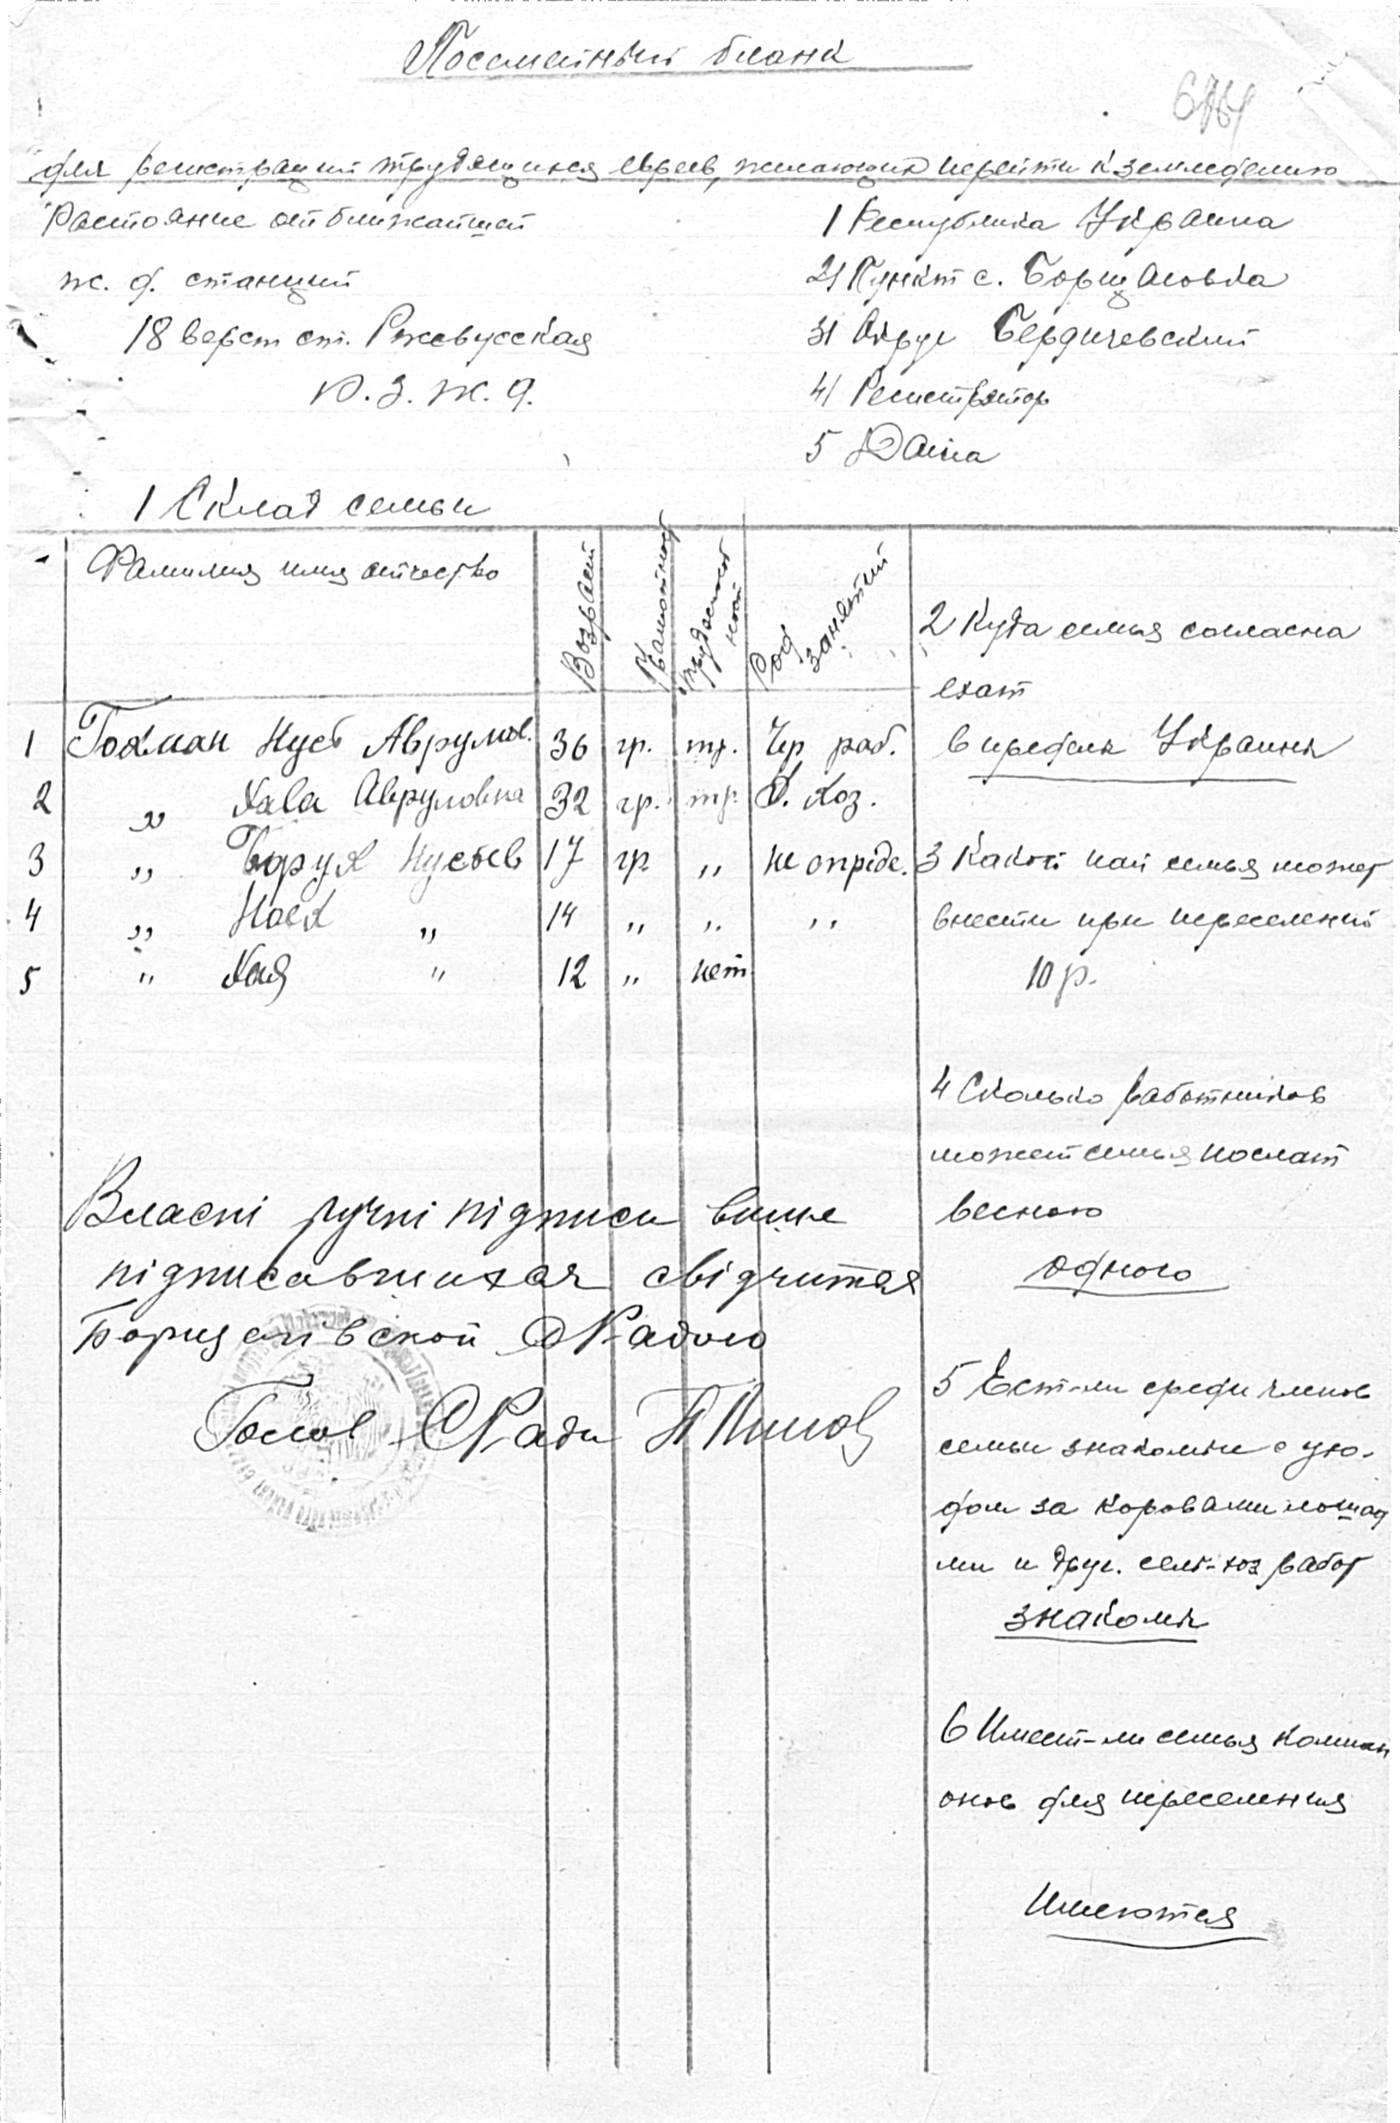 Посемейный бланк
для регистраций трудящихся евреев, желающих перейти к земледелию
Растояние от ближайшей
ж. д. станций
18 верст ст. Ржевусская
Ю. З. Ж. Д.
1 Республика Украина
2) Пункт с. Борщаговка
3) Округ Бердичевский
4) Регистратор
5 Дата
1 Склад семьи
Фамилия имя отчество
Возраст
Грамотност
трудоспособ
ност
Род
занятий
1 Гохман Нусь Аврумов. 36 гр. тр. Чер раб.
2 „ Хава Аврумовна 32 гр. тр. Д. Хоз.
3 „ Борух Нусьев 17 гр „ не опреде.
4 „ Ноех „ 14 „ „ „
5 „ Хая „ 12 „ нет
2 Куда семья согласна
ехат
в пределы Украины
3 Какой пай семья может
внести при переселений
10 р.
4 Сколько работников
может семья послат
весною
одного
5 Ест-ли среди членов
семьи знакомые с ухо-
дом за коровами лошад
ми и друг. сель-хоз работ
знакомы
6 Имеет-ли семья компан
онов для переселения
Имеются
Власні ручні підписи вище
підписавшихся свідчится
Борщагівской С Радою
Голов СРади